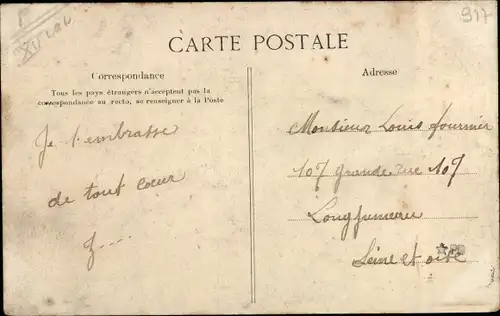 917
CARTE POSTALE
Correspondance
Tous les pays étrangers n'acceptent pas la
correspondance au recto, se renseigner à la Poste
Je t'embrasse
de tout cœur
J....
Adresse
Monsieur Louis Fournier
107 Grande rue 107
Longjumeau
Seine et oise